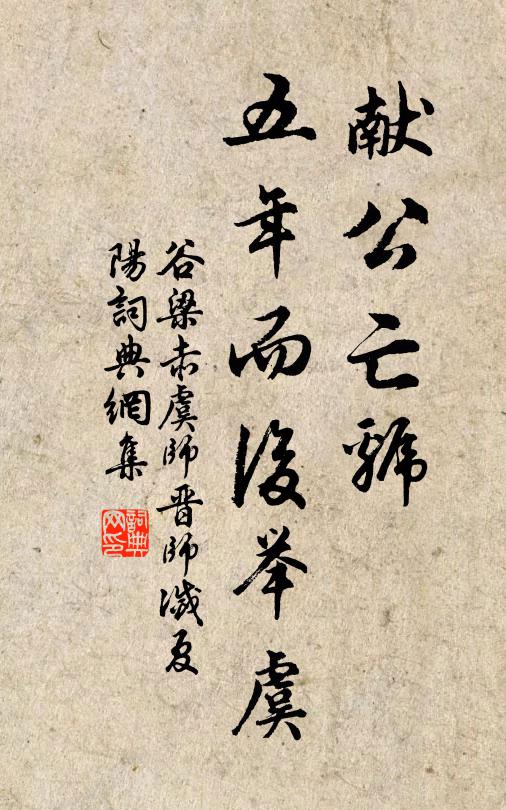 献公亡虢
五年而後举虞
谷梁赤虞師晋師滅夏
陽詞典網集
詞典网印